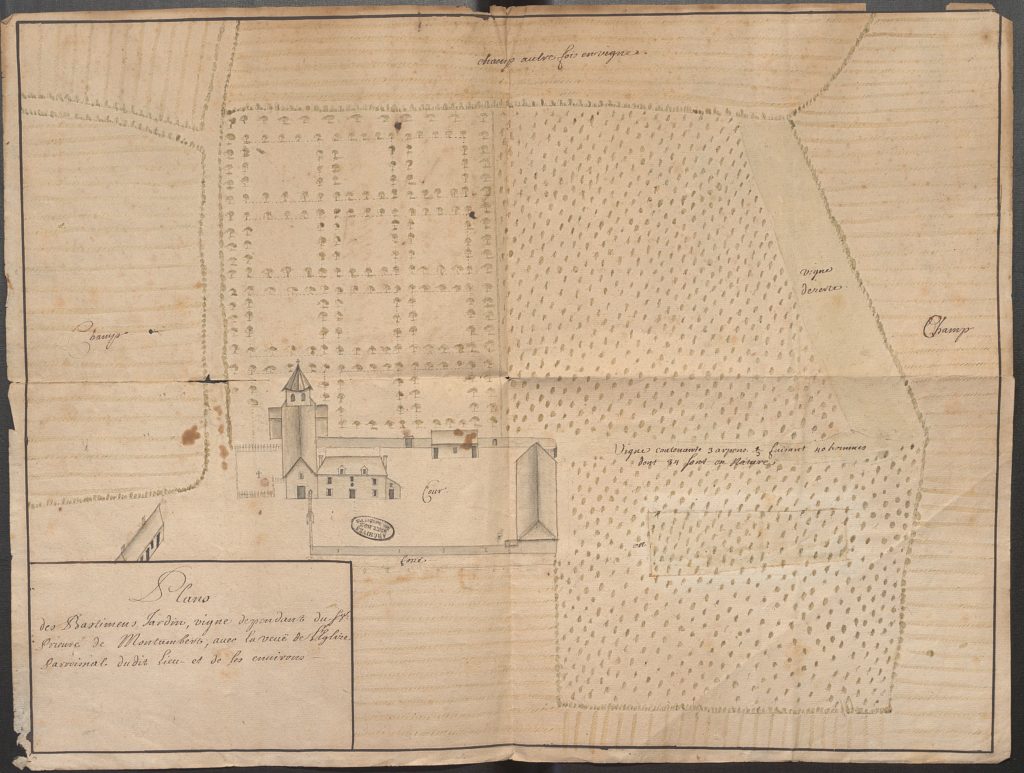 champ autre fois en vigne.
vigne
deserte
Champ
Champ
Vigne contenante 3 arpens ⅓ faisant 40 hommes
dont 34 sont en Nature.
Cour
Cour.
Plans
des Bastimens, Jardin, vigne dependants du
Prieuré de Montambert, avec la veue de l'Eglise
Parroissial dudit lieu et de ses environs